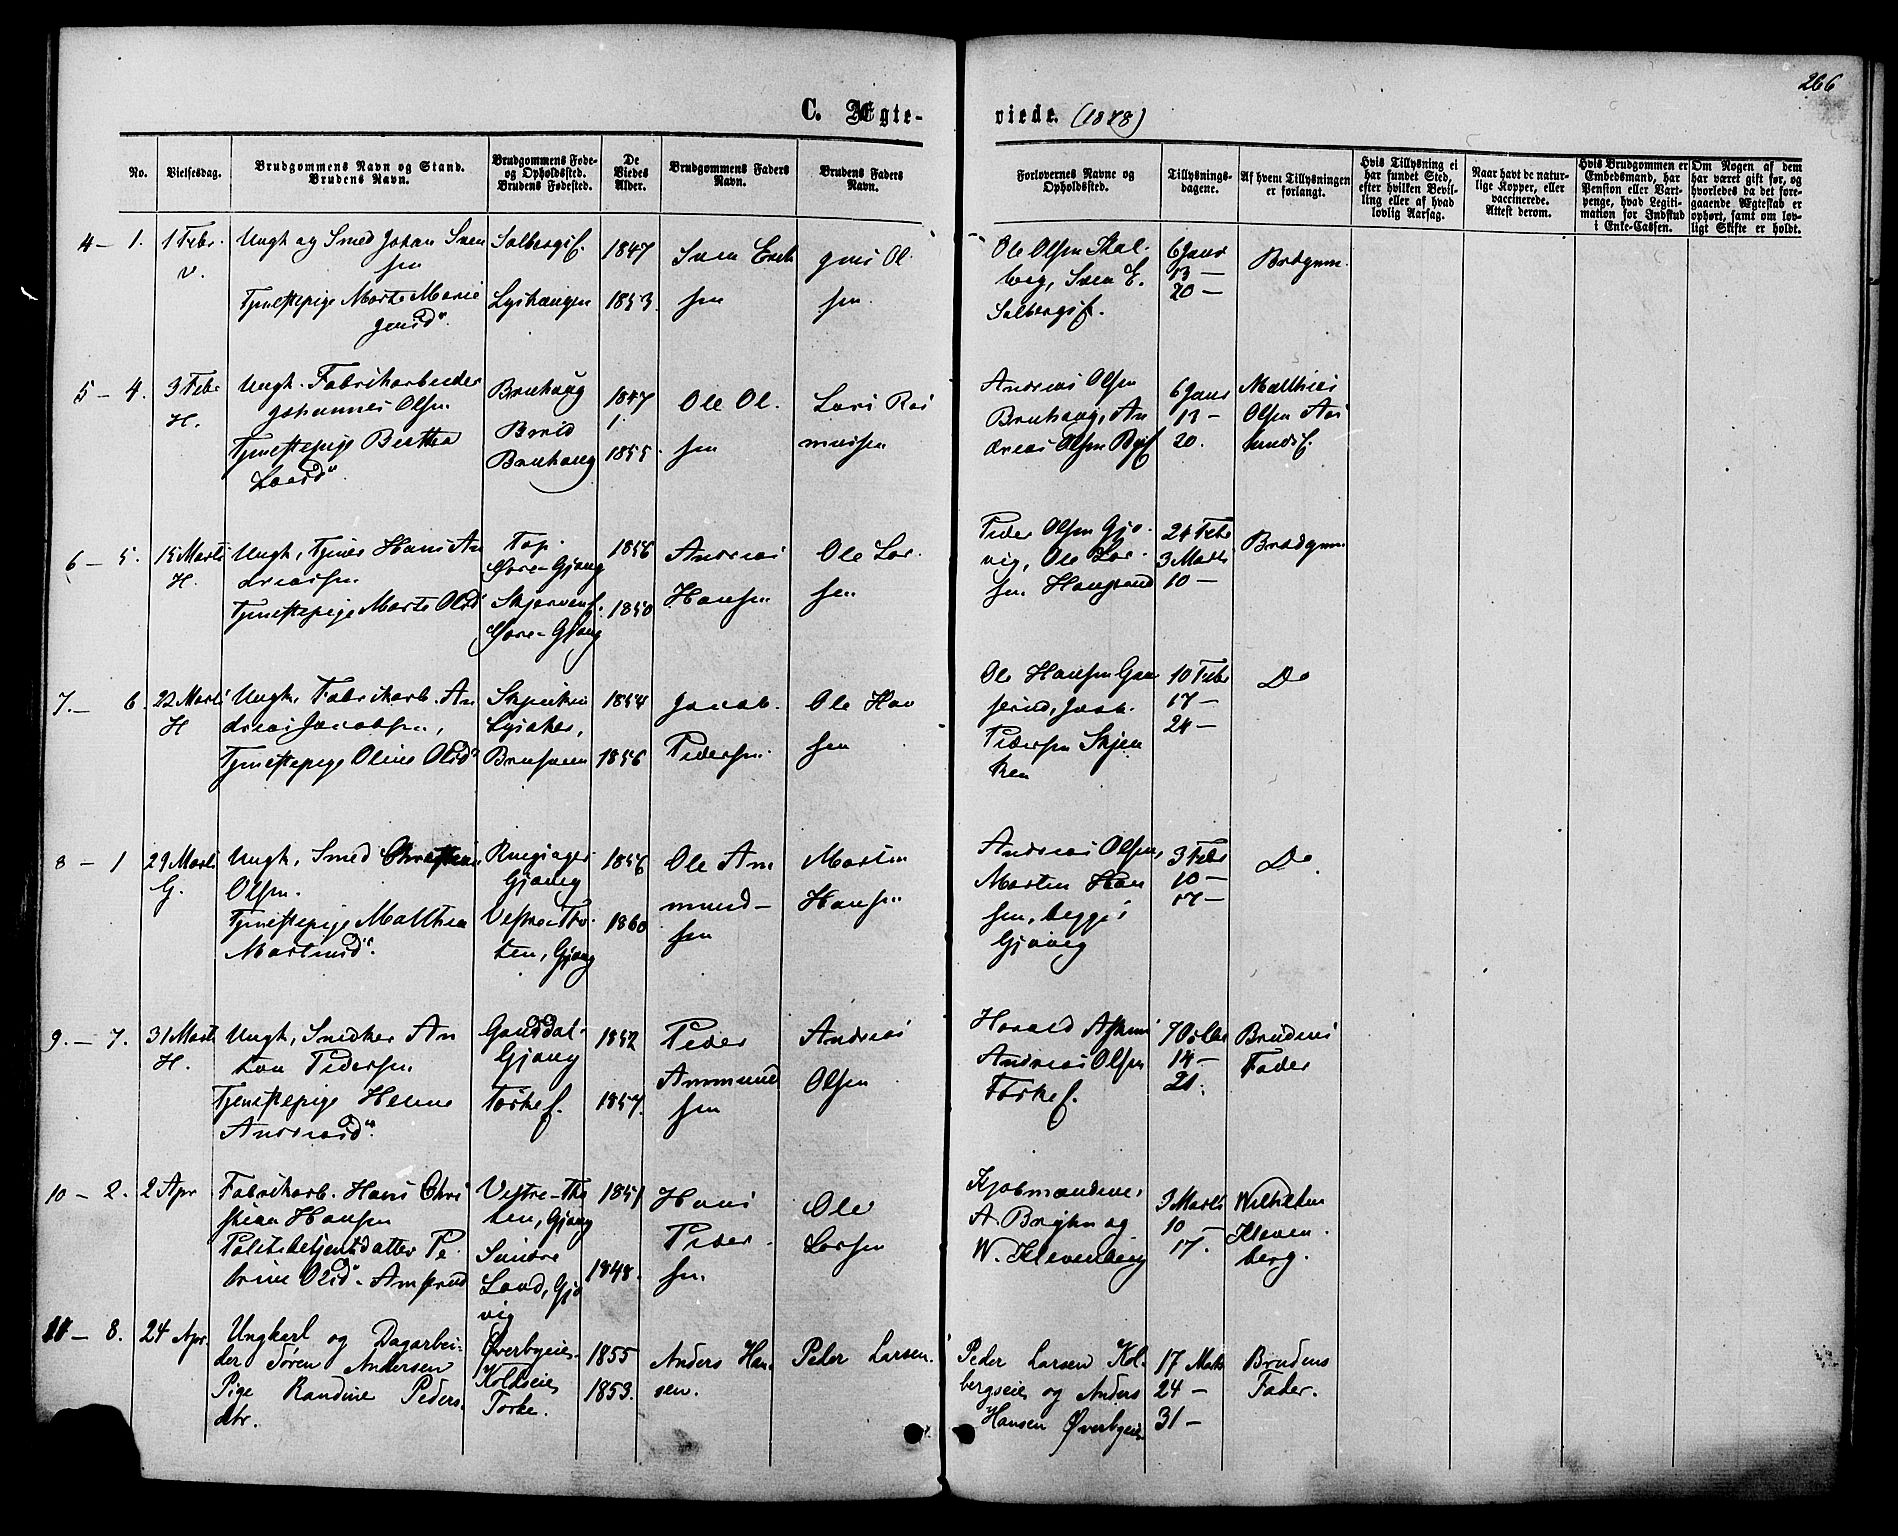 266
C. Ægte-
viede. (1878)
No.
Vielsesdag.
Brudgommens Navn og Stand.
Brudens Navn.
Brudgommens Føde-
og Opholdssted.
Brudens Fødested.
De
Viedes
Alder.
Brudgommens Faders
Navn.
Brudens Faders
Navn.
Forlovernes Navne og
Opholdssted.
Tillysnings-
dagene.
Af hvem Tillysningen
er forlangt.
Hvis Tillysning ei
har fundet Sted,
efter hvilken Bevil-
ling eller af hvad
lovlig Aarsag.
Naar havt de natur-
lige Kopper, eller
vaccinerede.
Attest derom.
Hvis Brudgommen er
Embedsmand, har
Pension eller Vart-
penge, hvad Legiti-
mation for Indskud
i Enke-Cassen.
Om Nogen af dem
har været gift før, og
hvorledes da det fore-
gaaende Ægteskab er
ophørt, samt om lov-
ligt Skifte er holdt.
4 — 1.
1 Febr.
V.
Ungk og Smed Johan Sven
sen
Tjenestepige Marte Marie
Solbergsf.
1847
1853.
Sven Erik
sen
Ol.
sen.
Ole Olsen
berg, Sven E.
Solbergsf.
6 Janr
13 —
20 —
Brudgom.
5 — 4.
3 Febr
H.
Ungk. Fabrikarbeider
Johannes Olsen
Tjenestepige Berthea
Larsd.
Bruhaug
Bruhaug
1847
1855.
Ole Ol.
sen
Lars Ras
mussen
Andreas Olsen
Bruhaug, An
dreas Olsen
6 Janr
13 —
20.
Matthias
Olsen Aas
lundsf.
6 — 5.
15 Marts
H.
Ungk, Tjener Hans An
dreassen
Tjenestepige Marte Olsd
Gjøvig
1856
1850
Andreas
Hansen
Ole Lar
sen
Peder Olsen Gjø-
vig, Ole Lar-
sen Haugsrud
24 Febr
3 Marts
10 —
Brudgom
7. — 6.
22 Marts
H
Ungk, Fabrikarb. An
dreas Jacobsen,
Tjenestepige Oline Olsd
Skjenken
Lysaker,
Brusveen
1854
1856
Jacob.
Pedersen
Ole Han
sen
Ole Hansen
Pedersen Skjen
ken
10 Febr
17 —
24 —
Do
8 — 1
29 Marts
G.
Ungk, Smed Christian
Olsen.
Tjenestepige Matthea
Martinsd.
Gjøvig
Vestre Tho-
ten, Gjøvig
1856
1860
Ole Am
mund-
sen
Martin
Hansen
Andreas Olsen,
Morten Han
sen, begges
Gjøvig
3 Febr
10 —
17 —
Do.
9. — 7.
31 Marts
H.
Ungk, Snedker An
ton Pedersen
Tjenestepige Helene
Andreasd.
Gjøvig
Torkef.
1852
1857.
Peder
Ammund
sen
Andreas
Olsen
Harald
Andreas Olsen
Torkef.
7 Octbr
14 —
21.
Brudens
Fader
10 — 2.
2 Apr
Fabrikarb. Hans Chri
stian Hansen
Politibetjentsdatter Pe-
trine Olsd. Amsrud
Vestre-Tho
ten, Gjøvig
Søndre
Land, Gjø
vig
1851
1848.
Hans
Peder
sen.
Ole
Larsen
Kjøbmændene,
A. Bryhn og
W. Klevenberg
3 Marts
10 —
17.
Wilhelm
Kleven-
berg.
11 — 8.
24 Apr.
Ungkarl og Dagarbei-
der Søren Andersen
Pige Randine Peders-
dtr.
Øverbyeie,
Koldseie
Torke.
1855
1853.
Anders Han-
sen.
Peder Larsen.
Peder Larsen Kol-
bergseie og Anders
Hansen Øverbyeie.
17 Marts
24 —
31 —
Brudens
Fader.